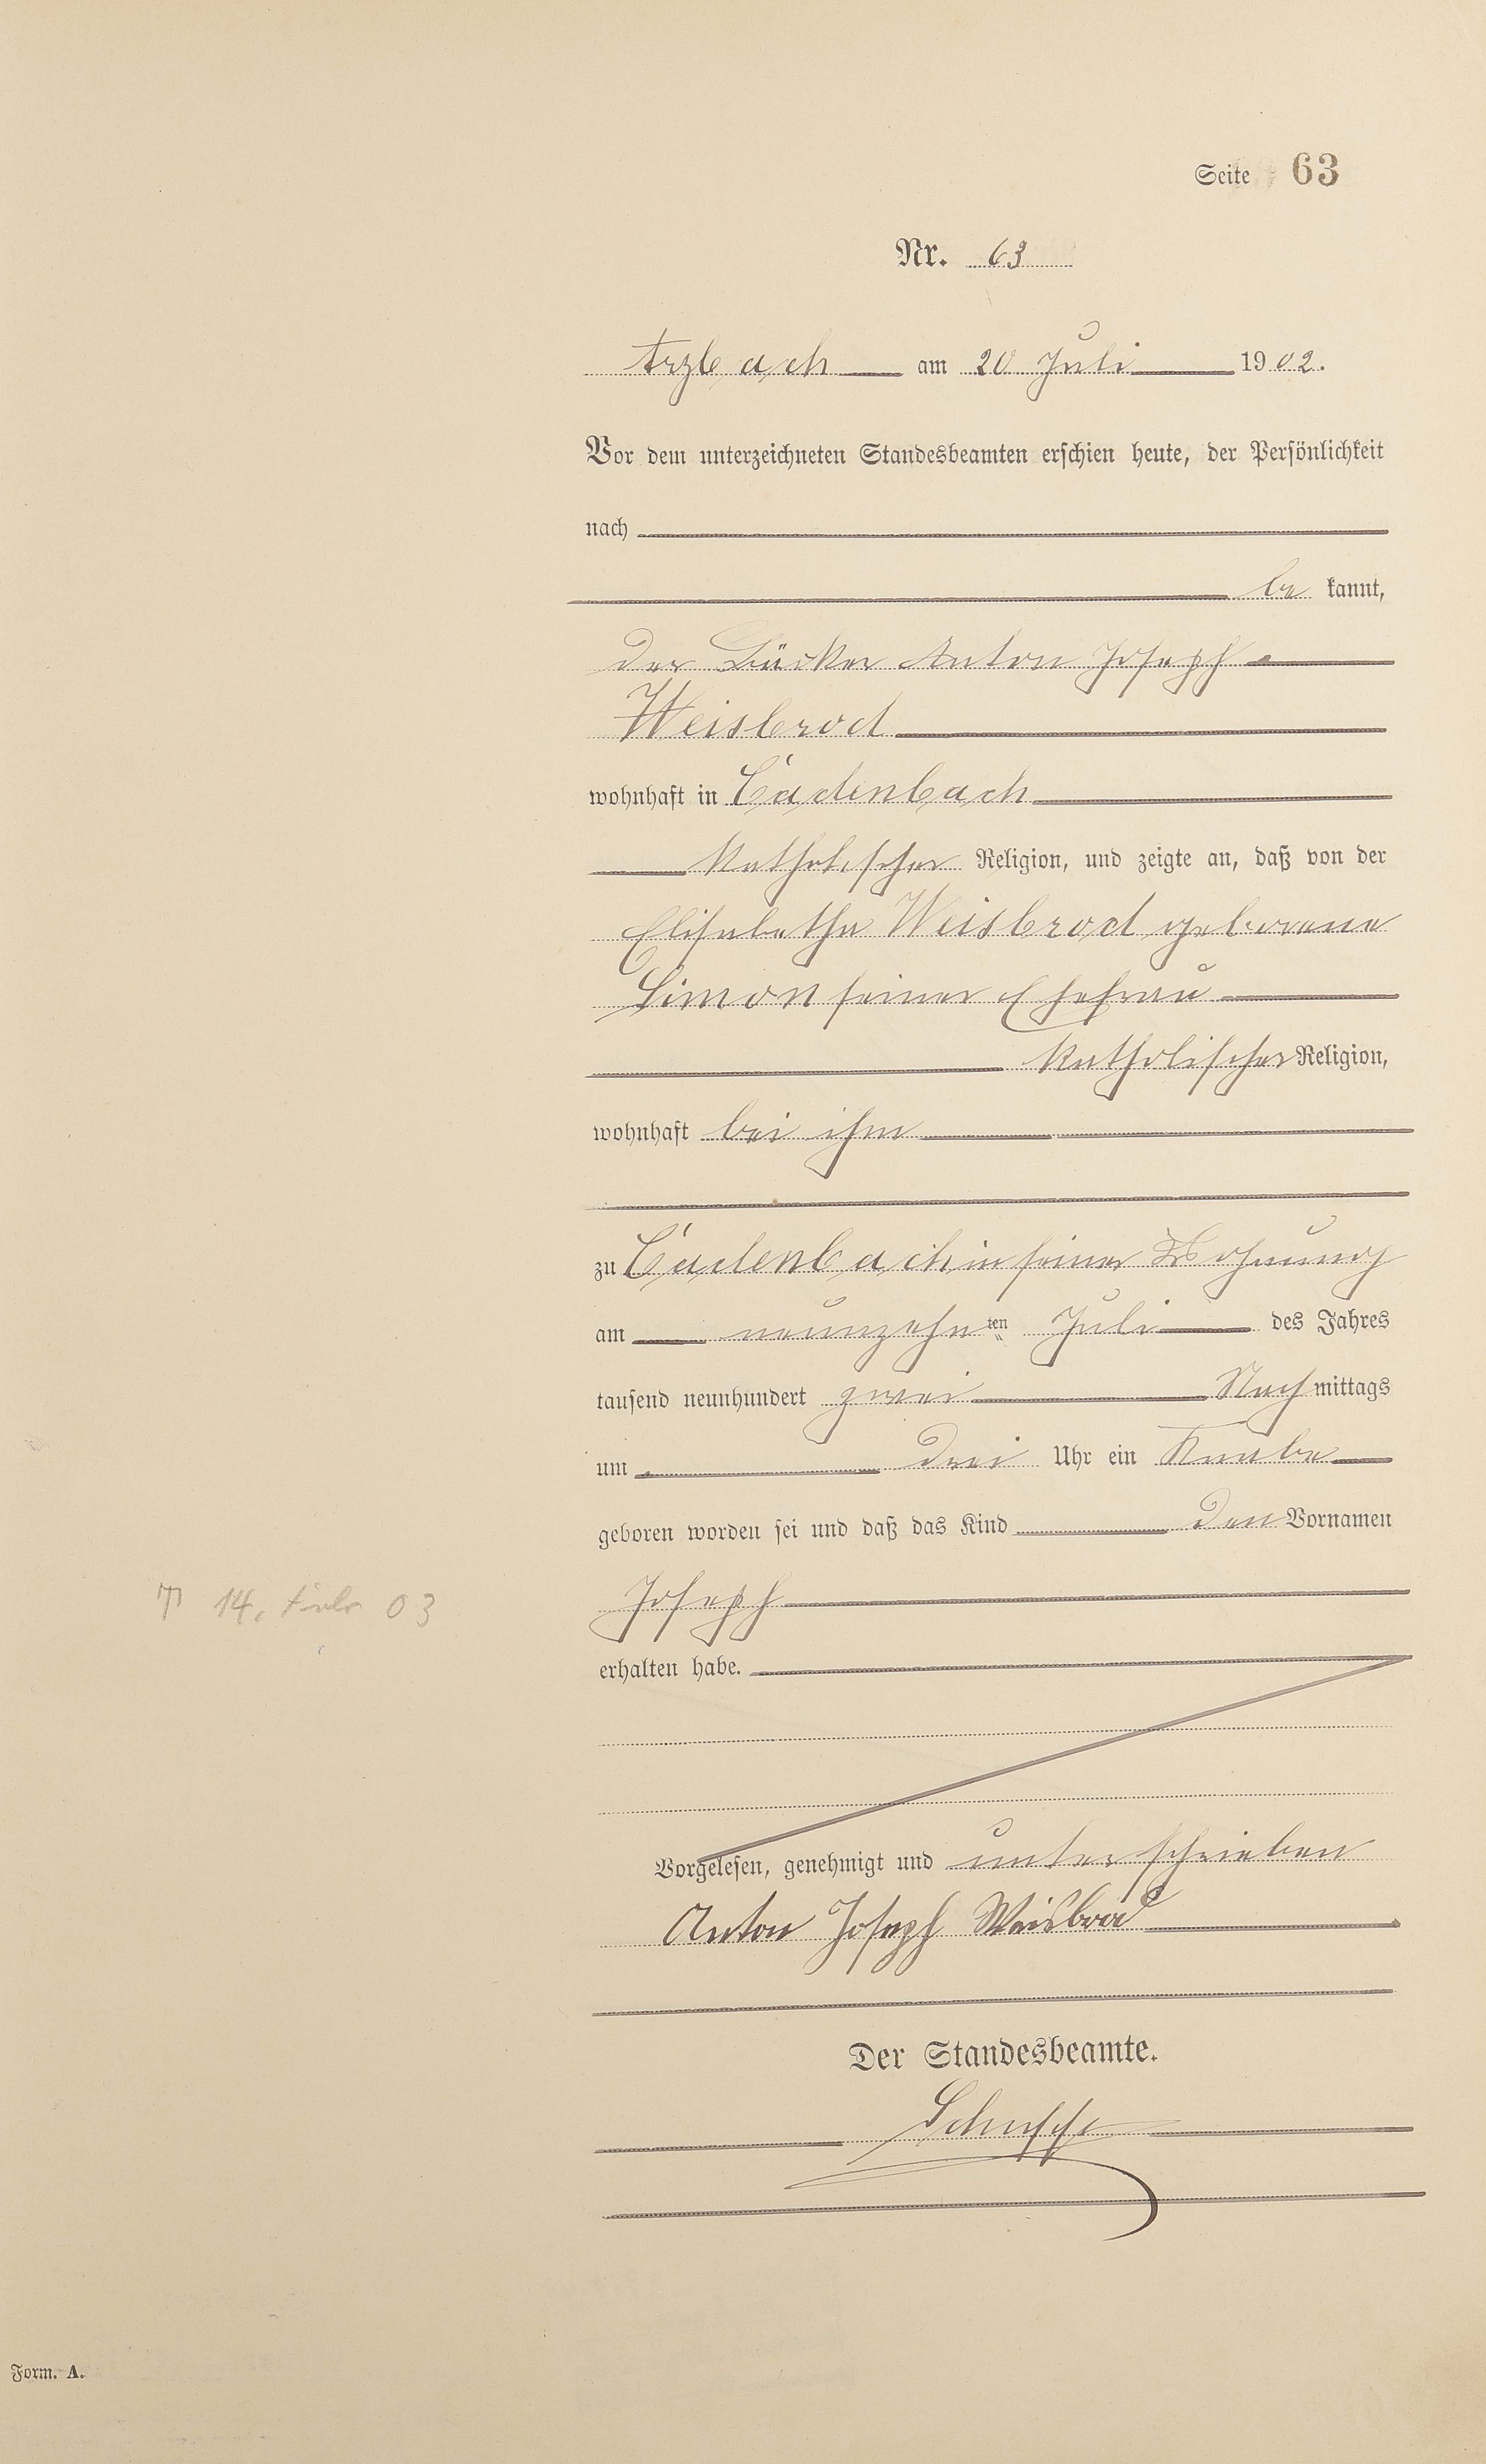 Seite 63
Nr. 63
Arzbach am 20 Juli 1902.
Vor dem unterzeichneten Standesbeamten erschien heute, der Persönlichkeit
nach
be kannt,
der Bäcker Anton Joseph
Weisbrod
wohnhaft in Cadenbach
katholischer Religion, und zeigte an, daß von der
Elisabetha Weisbrod geborene
Simon seiner Ehefrau
katholischer Religion,
wohnhaft bei ihm
zu Cadenbach in seiner Wohnung
am neunzehnten Juli des Jahres
tausend neunhundert zwei Nachmittags
um drei Uhr ein Knabe
geboren worden sei und daß das Kind den Vornamen
14. 03
Joseph
erhalten habe.
Vorgelesen, genehmigt und unterschrieben
Anton Joseph Weisbrod
Der Standesbeamte.
Form. A.